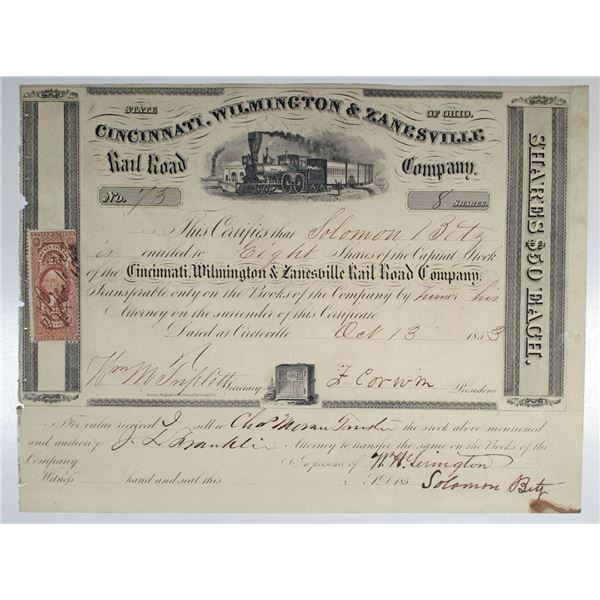 STATE OF OHIO.
CINCINNATI, WILMINGTON & ZANESVILLE
Rail Road Company.
No. 73 8 SHARES.
This Certifies that Solomon Betz
is entitled to Eight Shares of the Capital Stock
of the Cincinnati, Wilmington & Zanesville Rail Road Company,
Transferable only on the Books of the Company by him or his
Attorney on the surrender of this Certificate
Dated at Circleville Oct 13 1853
Wm M Triplett Secretary F Corwin President
SHARES $50 EACH.
For value received I sell to Chas Moran the stock above mentioned
and authorize J L Franklin Attorney to transfer the same on the Books of the
Company In presence of
Witness hand and seal this A.D. 185 Solomon Betz